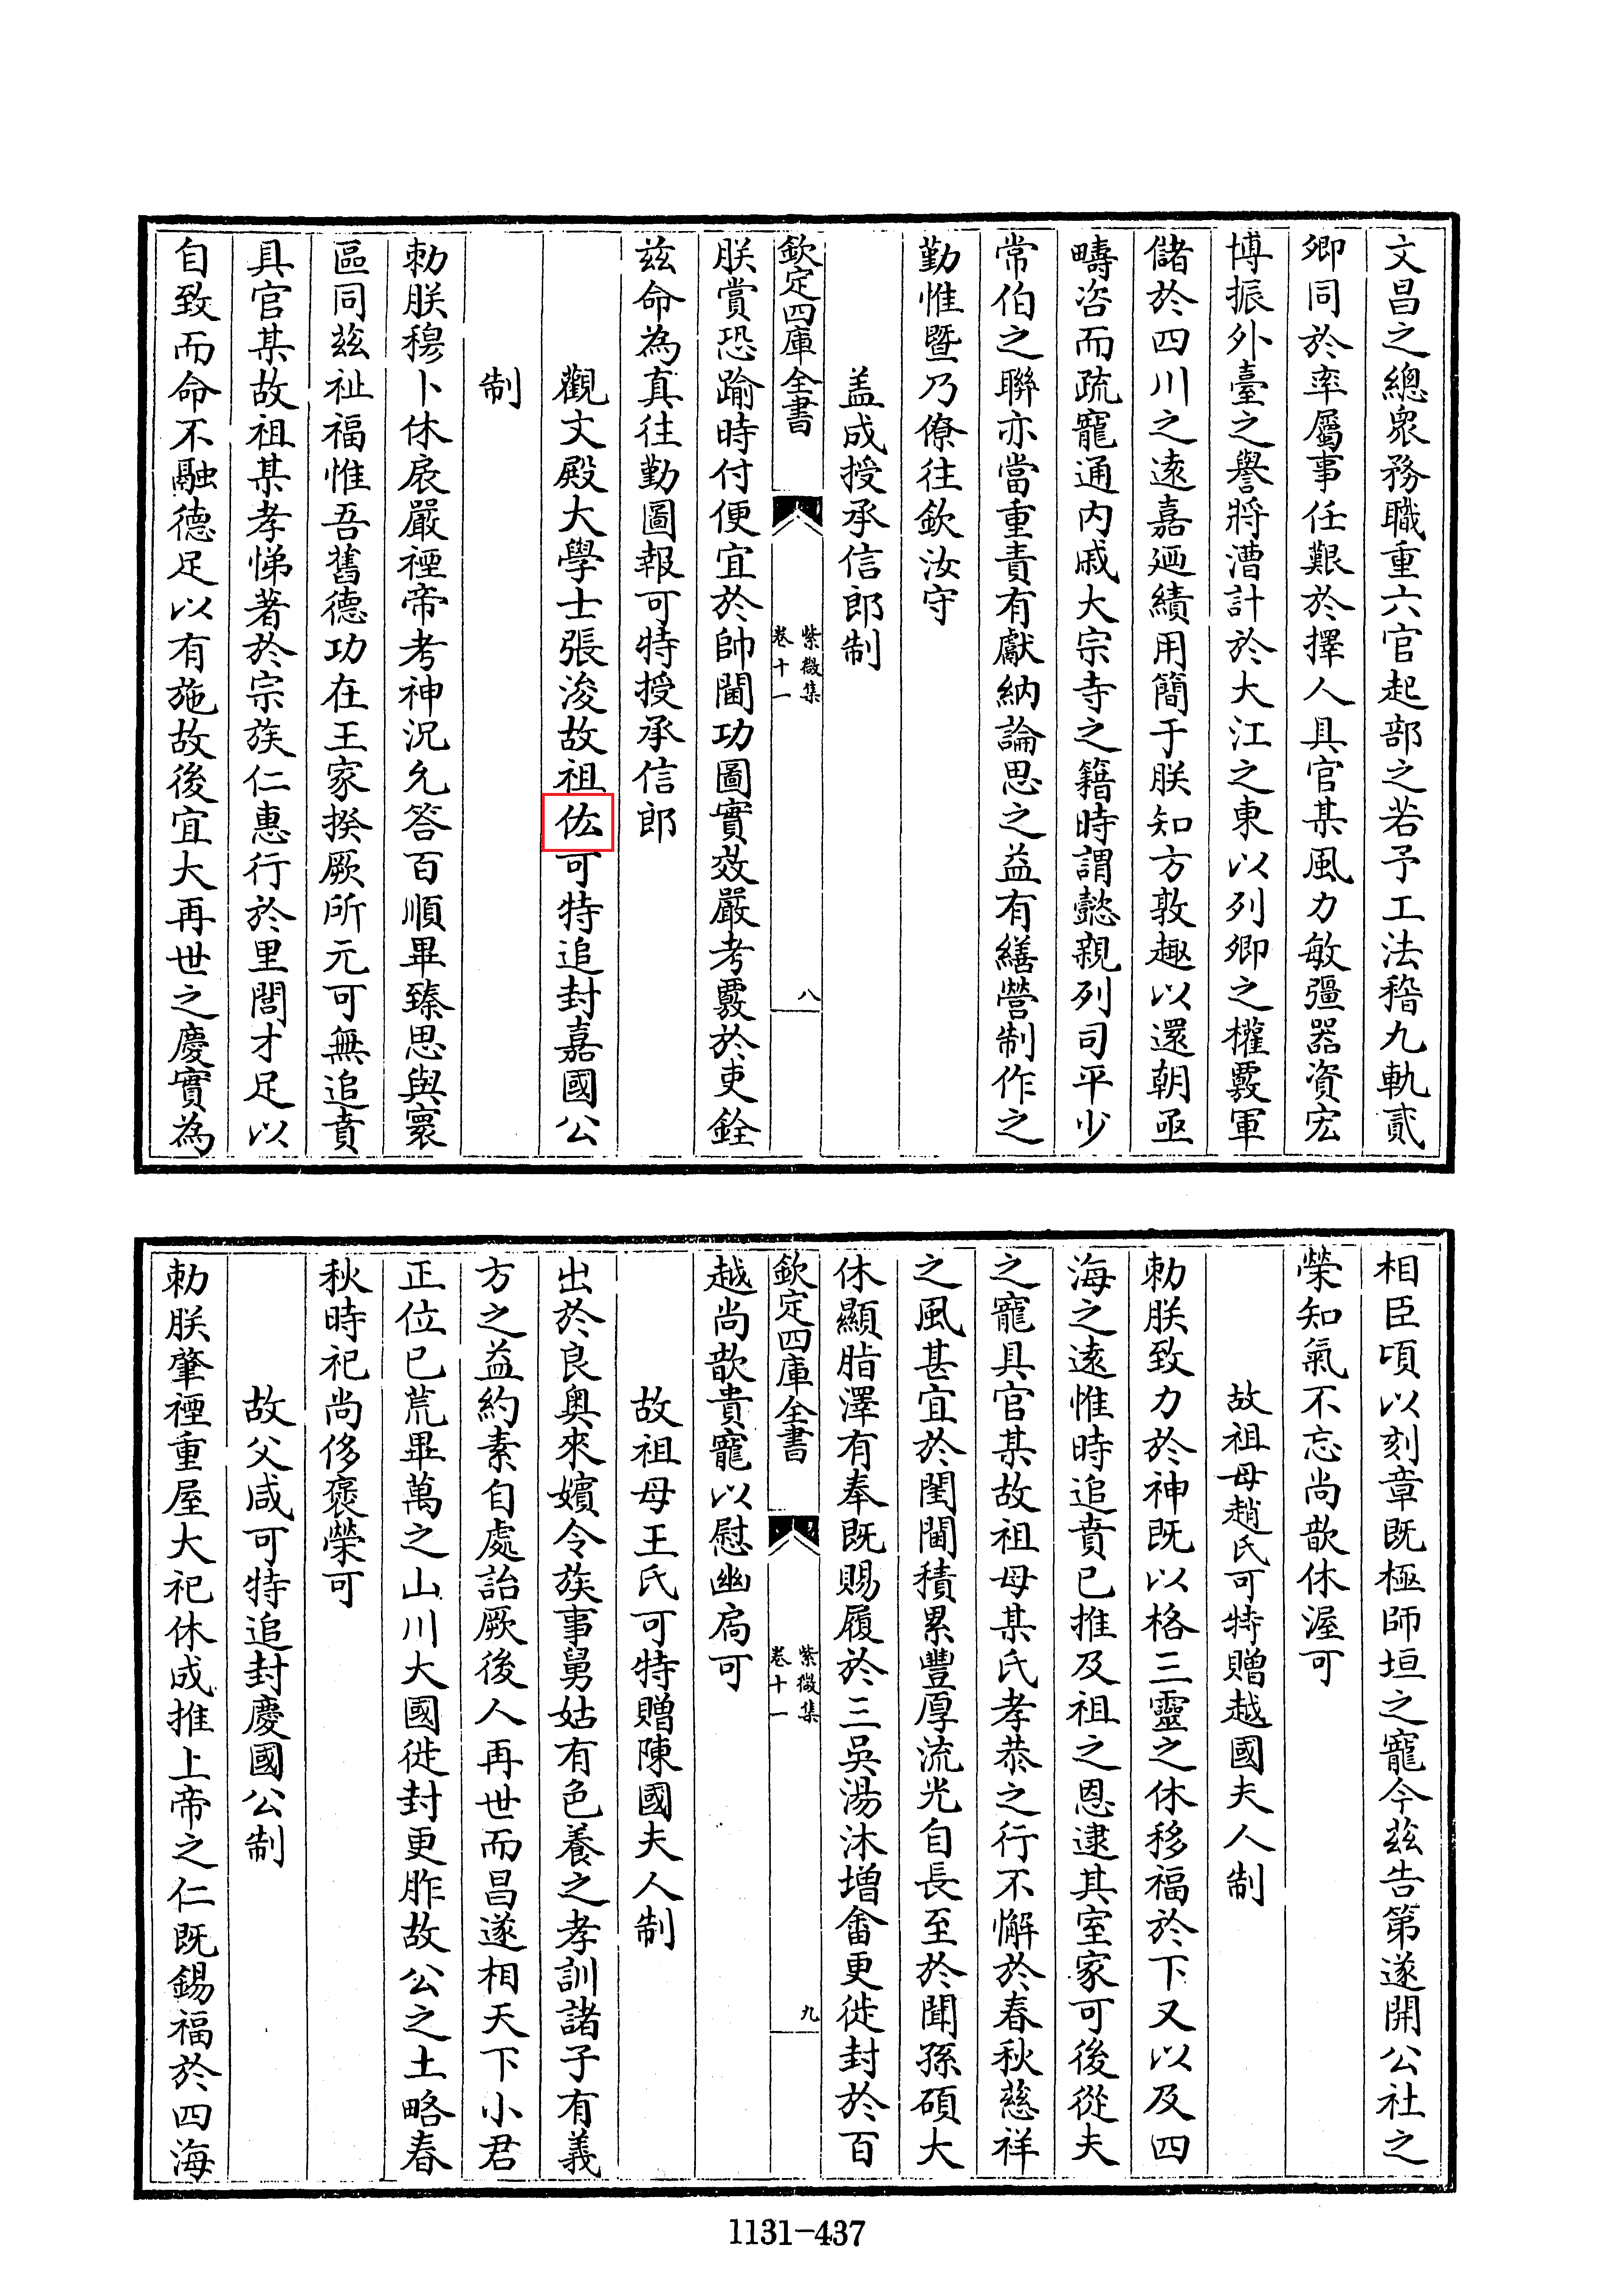 文昌之總衆務職重六官起部之若予工法稽九軌貳
卿同於率屬事任艱於擇人具官某風力敏彊器資宏
博振外臺之譽將漕計於大江之東以列卿之權覈軍
儲於四川之逺嘉廼績用簡于朕知方敦趣以還朝亟
疇咨而疏寵通内戚大宗寺之籍時謂懿親列司平少
常伯之聯亦當重責有獻納論思之益有繕營制作之
勤惟暨乃僚往欽汝守
盖成授承信郎制
欽定四庫全書
紫微集
卷十一
八
朕賞恐踰時付便宜於帥閫功圖實效嚴考覈於吏銓
兹命為真往勤圖報可特授承信郎
觀文殿大學士張浚故祖佐可特追封嘉國公
制
勅朕穆卜休扆嚴禋帝考神況允答百順畢臻思與寰
區同兹祉福惟吾舊德功在王家揆厥所元可無追賁
具官某故祖某孝悌著於宗族仁惠行於里閭才足以
自致而命不融德足以有施故後宜大再世之慶實為
相臣頃以刻章既極師垣之寵今兹告第遂開公社之
榮知氣不忘尚歆休渥可
故祖母趙氏可特贈越國夫人制
勅朕致力於神既以格三靈之休移福於下又以及四
海之逺惟時追賁已推及祖之恩逮其室家可後從夫
之寵具官某故祖母某氏孝恭之行不懈於春秋慈祥
之風甚宜於閨閫積累豐厚流光自長至於聞孫碩大
休顯脂澤有奉既賜履於三吳湯沐增畬更徙封於百
欽定四庫全書
紫微集
卷十一
九
越尚歆貴寵以慰幽扃可
故祖母王氏可特贈陳國夫人制
出於良奥來嬪令族事舅姑有色養之孝訓諸子有義
方之益約素自處詒厥後人再世而昌遂相天下小君
正位已荒畢萬之山川大國徙封更胙故公之土略春
秋時祀尚侈褒榮可
故父咸可特追封慶國公制
勅朕肇禋重屋大祀休成推上帝之仁既錫福於四海
1131-437